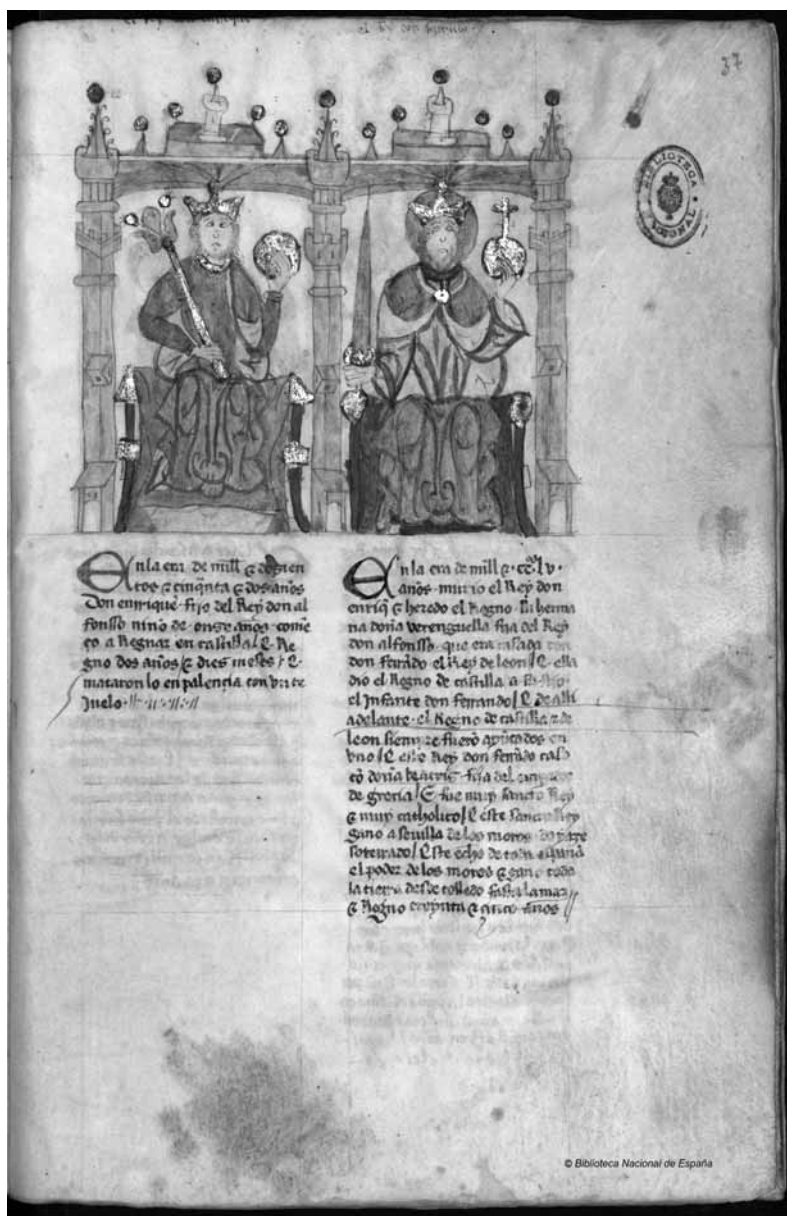 37
BIBLIOTECA
NACIONAL
En la era de mill & dozien
tos & cinqnta & dos años
Don enrique fijo del Rey don al
fonsso nino de onze años comẽ
ço a Regnar en castilla / E Re
gno dos años & dies meses / E
mataron lo en palençia con vn te
juelo
En la era de mill & ccos lv
años murio el Rey don
enriq & heredo el Regno su herma
na doña verenguella fija del Rey
don alfonsso que era casada con
don ferãdo el Rey de leon / E ella
dio el Regno de castilla a su fijo
el Infante don ferrando / E de alli
adelante el Regno de castilla & de
leon sienpre fuerõ ayũtados en
vno / E este Rey don ferrãdo casa
cõ doña beatris fija del
de greçia / E fue muy sancto Rey
& muy catholico / E este sancto Rey
gano a seuilla de los moros do yaze
soterrado / Este echo de toda españa
el poder de los moros & gano toda
la tierra desde tolledo fasta la mar
& Regno treynta & años
© Biblioteca Nacional de España